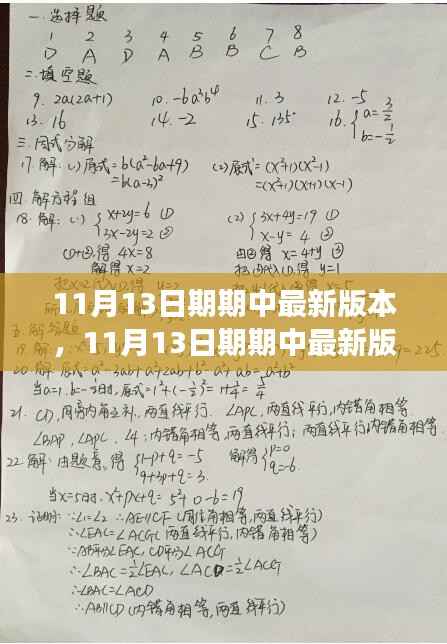 一.选择题
1 2 3 4 5 6 7 8
D A D A B B C B
二.填空题
9. 2a(2a+1) 10. -6a³b⁴ 11. 3 12. -5
13. 16 14. -2 15. 135° 16. {a=3/2 b=-1/2
三.因式分解
17.解:(1)原式=b(a²-6a+9) (2)原式=(x²+1)(x²-1)
=b(a-3)² =(x²+1)(x+1)(x-1)
四.解方程组
18.解:(1) {x+2y=6 ① (2) {3x+4y=19 ①
3x-2y=2 ② x-y=4 ②
①+②,得 4x=8 由②得 x=4+y ③
解得 x=2 得 y=1
11月13日期期中最新版本
,11月13日期期中最新版
20.解:
当a=1.b=-1/2时,原式=1²+(-1/2)²=1+1/4=5/4
21. 同旁内角互补,两直线平行. ∠APC,两直线平行,内错角相等.
∠BAP,∠APC,∠4;内错角相等,两直线平行;两直线平行,内错角相等.
22.解:由题意,得 {1-p+q=-5 解得 {p=0
9+3p+q=3. q=-6.
当x=5时,x²+px+q=5²+0-6=19
23. 证明:∵∠1=∠2 ∴AE∥CF(同位角相等,两直线平行)
∴∠EAC=∠ACG(两直线平行,内错角相等)
∵AB平分∠EAC,CD平分∠ACG
∴∠BAC=½∠EAC,∠ACD=½∠ACG
∴∠BAC=∠ACD
∴AB∥CD(内错角相等,两直线平行)